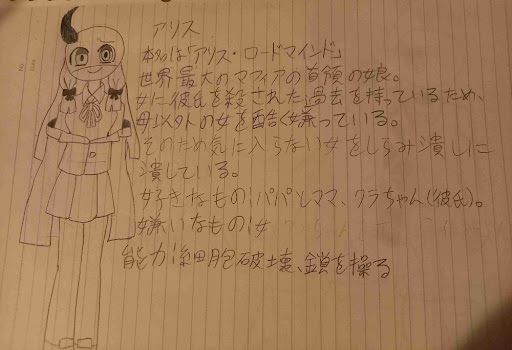 アリス
本名は「アリス・ロードマインド」
世界最大のマフィアの首領の娘。
女に彼氏を殺された過去を持っているため、
母以外の女を酷く嫌っている。
そのため気に入らない女をしらみ潰しに
潰している。
好きなもの:パパとママ、クラちゃん(彼氏)。
嫌いなもの:女
能力:細胞破壊、鎖を操る